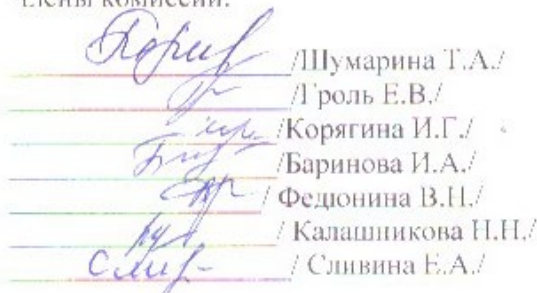 комиссии:
/Шумарина Т.А./
/Гроль Е.В./
/Корягина И.Г./
/Баринова И.А./
/ Федюнина В.Н./
/ Калашникова Н.Н./
/ Сливина Е.А./